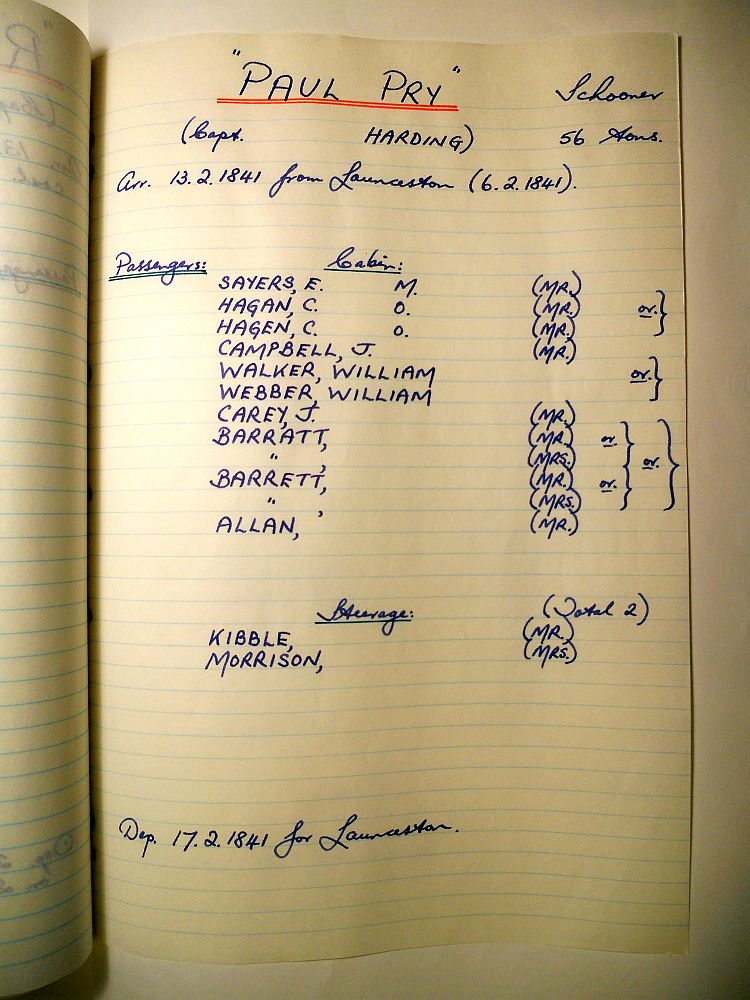 "PAUL PRY" Schooner
(Capt. HARDING) 56 Tons.
Arr. 13.2.1841 from Launceston (6.2.1841).
Passengers: Cabin:
SAYERS, E. M. (MR.)
HAGAN, C. O. (MR.) or. }
HAGEN, C. O. (MR.)
CAMPBELL, J. (MR.)
WALKER, WILLIAM or. }
WEBBER, WILLIAM
CAREY, J. (MR.)
BARRATT, (MR.) or. }
" , (MRS.) or. }
BARRETT, (MR.) or.
" , (MRS.)
ALLAN, (MR.)
Steerage: (Total 2)
KIBBLE, (MR.)
MORRISON, (MRS.)
Dep. 17.2.1841 for Launceston.